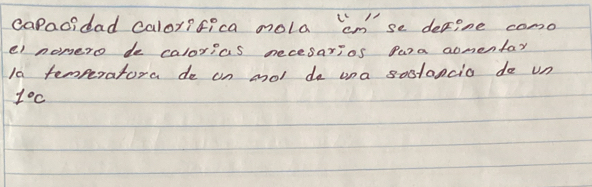 capacidad calorifica mola "cm" se define como
el nomero de calorias necesarios para aomentar
la temperatura de un mol de una sostancia de un
1°c